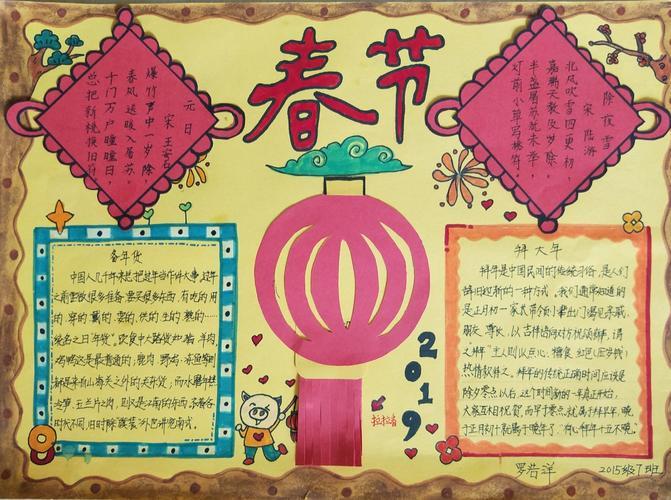 春节
元日
宋 王安石
爆竹声中一岁除，
春风送暖入屠苏。
千门万户曈曈日，
总把新桃换旧符。
除夜雪
宋 陆游
北风吹雪四更初，
嘉瑞天教及岁除。
半盏屠苏犹未举，
灯前小草写桃符。
备年货
中国人几千年来总把过年当作件大事，过年
之前要做很多准备，要买很多东西，有吃的、用
的、穿的、戴的、耍的、供的、
统名之曰"年货"。
时代不同，
拜大年
拜年是中国民间的传统习俗，是人们
辞旧迎新的一种方式。我们通常知道的
是正月初一家长带领小辈出门谒见亲戚、
朋友、尊长，以吉祥语向对方祝颂新年，谓
之"拜"。主人则以点心、糖食、红包(压岁钱)
热情款待之。拜年的传统正确时间应该是
除夕零点以后，这个时间新的一年真正开始，
大家互相祝贺，而早于零点就属于拜早年，晚
于正月初十就属于晚年了。"有心拜年十五不晚。"
2019
拉拉看
罗浩洋
2015级7班